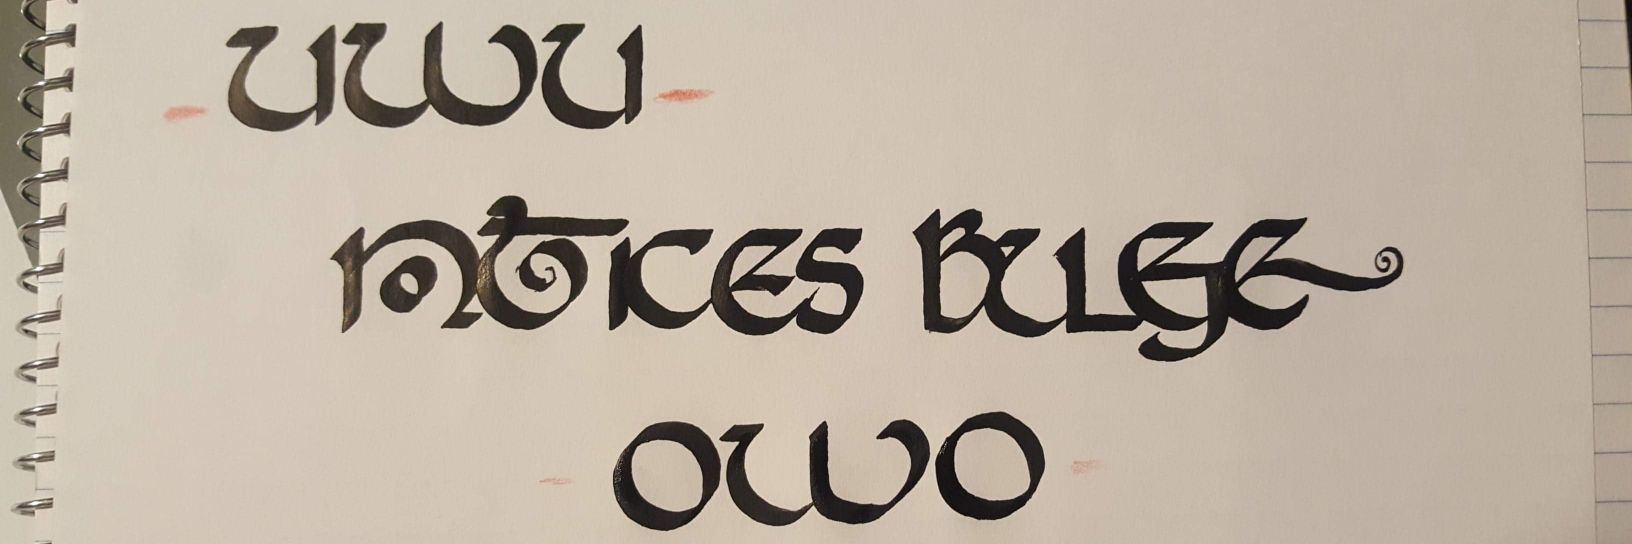 uwu
notices bulge
owo